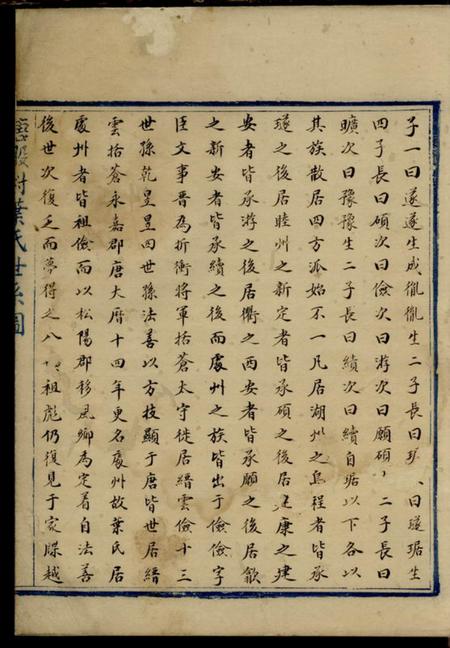 子一曰遂遂生成胤胤生二子長曰琚曰璲琚生
四子長曰碩次曰儉次曰游次曰願碩二子長曰
曠次曰豫豫生二子長曰績次曰續自琚以下各以
其族散居四方派始不一凡居湖州之烏程者皆承
璲之後居睦州之新定者皆承碩之後居建康之建
安者皆承游之後居衢之西安者皆承願之後居歙
之新安者皆承續之後而處州之族皆出于儉儉字
臣文事晋為折衝將軍括蒼太守徙居縉雲儉十三
世孫乾昱昱四世孫法善以方技顯于唐皆世居縉
雲括蒼永嘉郡唐大曆十四年更名處州故葉氏居
處州者皆祖儉而以松陽郡移風鄉為定着自法善
後世次復乏而夢得之八祖彪仍復見于家牒越
葉氏世系圖